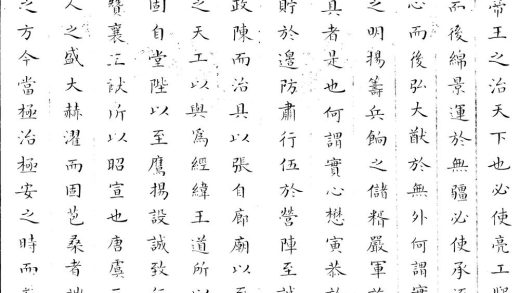 帝王之治天下也必使亮工熙
而後綿景運於無疆必使承
心而後弘大猷於無外何謂實
之明揚籌兵餉之儲糈嚴軍
具者是也何謂實心懋寅恭於
貯於邊防肅行伍於營陣至
政陳而治具以張自廊廟以至
之天工以與為經緯王道所以
固自堂陛以至鷹揚設誠致
贊襄三猷所以昭宣也唐虞三
人之盛大赫濯而固苞桑者
之方今當極治極安之時而